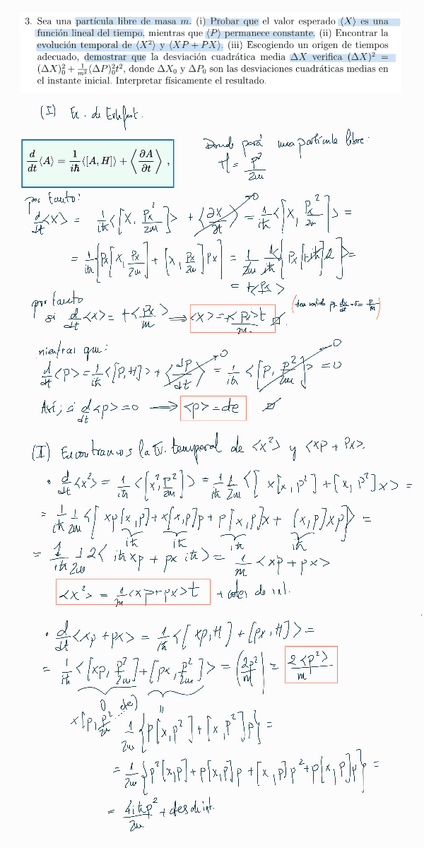 3. Sea una partícula libre de masa m. (i) Probar que el valor esperado ⟨X⟩ es una
función lineal del tiempo, mientras que ⟨P⟩ permanece constante. (ii) Encontrar la
evolución temporal de ⟨X²⟩ y ⟨XP + PX⟩. (iii) Escogiendo un origen de tiempos
adecuado, demostrar que la desviación cuadrática media ΔX verifica (ΔX)² =
(ΔX)₀² + 1/m² (ΔP)₀² t², donde ΔX₀ y ΔP₀ son las desviaciones cuadráticas medias en
el instante inicial. Interpretar físicamente el resultado.
(I) Ec. de Ehrenfest.
d/dt ⟨A⟩ = 1/iħ ⟨[A, H]⟩ + ⟨∂A/∂t⟩ ,
Donde para una partícula libre:
H = p²/2m
por tanto:
d/dt <x> = 1/iħ <[x, Px²/2m]> + <∂x/∂t> → 0 = 1/iħ <[x, Px²/2m]> =
= 1/iħ
= + <Px>
por tanto
si d/dt <x> = + <Px/m> ⟹ <x> = + <Px>t/m
mientras que:
d/dt <p> = 1/iħ <[p, H]> + <dp/dt> → 0 = 1/iħ <[p, p²/2m]> → 0 = 0
Así, si d/dt <p> = 0 ⟶ <p> = cte
(I) Encontramos la Ev. temporal de <x²> y <xp + px>.
• d/dt <x²> = 1/iħ <[x², p²/2m]> = 1/iħ 1/2m <[ x[x, p²] + [x, p²]x > =
= 1/iħ 1/2m <[ xp[x, p] + x[x, p]p + p[x, p]x + [x, p]xp ]> =
iħ iħ iħ iħ
= 1/iħ 1/2m 2 < iħ xp + px iħ > = 1/m <xp + px>
<x²> = 1/m <xp + px> t
• d/dt <xp + px> = 1/iħ <[xp, H] + [px, H]> =
= 1/iħ <[xp, p²/2m] + [px, p²/2m]> = (2p²/m) = 2<p²>/m
x[p, p²/2m] 1/2m {p[x, p²] + [x, p²]p} =
= 1/2m {p²[x, p] + p[x, p]p + [x, p]p² + p[x, p]p} =
= 4iħp²/2m